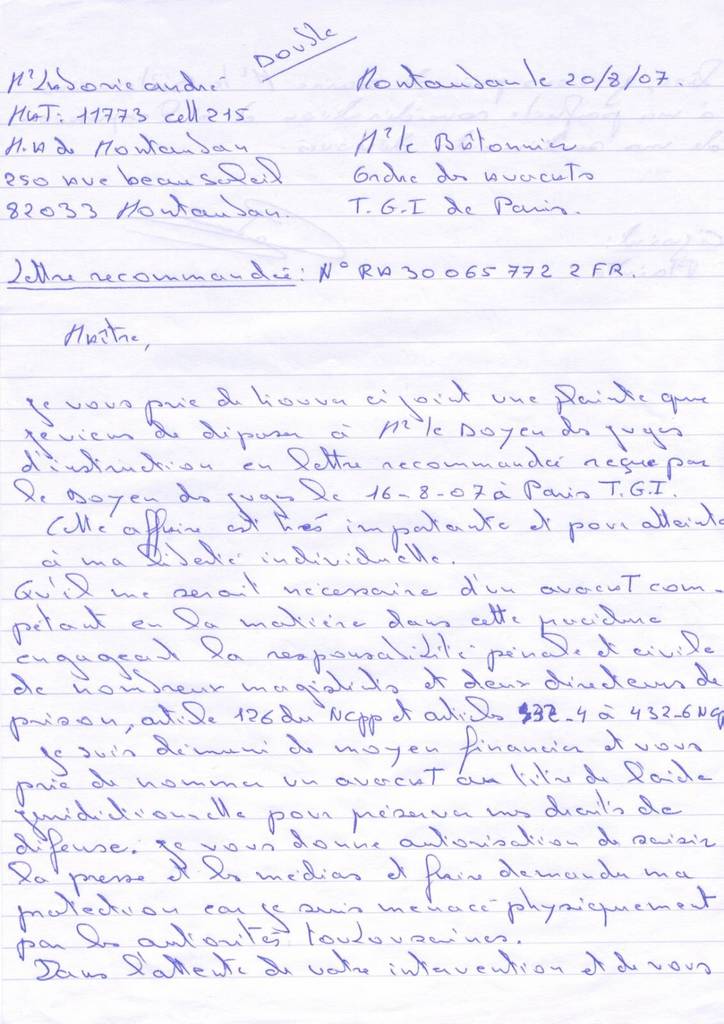 Double
Mr Laborie andré
MAT: 11773 cell 215
M.A de Montauban
250 Ave beau soleil
82033 Montauban.
Montauban le 20/8/07.
Mr le Bâtonnier
Ordre des Avocats
T.G.I de Paris.
Lettre recommandée: N° RA 30 065 772 2 FR.
Maître,
Je vous prie de trouver ci joint une plainte que
je viens de déposer à Mr le Doyen des juges
d'instruction en lettre recommandée reçue par
le Doyen des juges le 16-8-07 à Paris T.G.I.
Cette affaire est très importante et pour atteinte
à ma liberté individuelle.
Qu'il me serait nécessaire d'un avocat com-
pétant en la matière dans cette procédure
engageant la responsabilité pénale et civile
de nombreux magistrats et deux directeurs de
prison, article 126 du NCPP et articles 432-4 à 432-6 NCP
Je suis démuni de moyen financier et vous
prie de nommer un avocat au titre de l'aide
juridictionnelle pour préserver mes droits de
défense. Je vous donne autorisation de saisir
la presse et les médias et faire demander ma
protection car je suis menacé physiquement
par les autorités toulousaines.
Dans l'attente de votre intervention et de vous